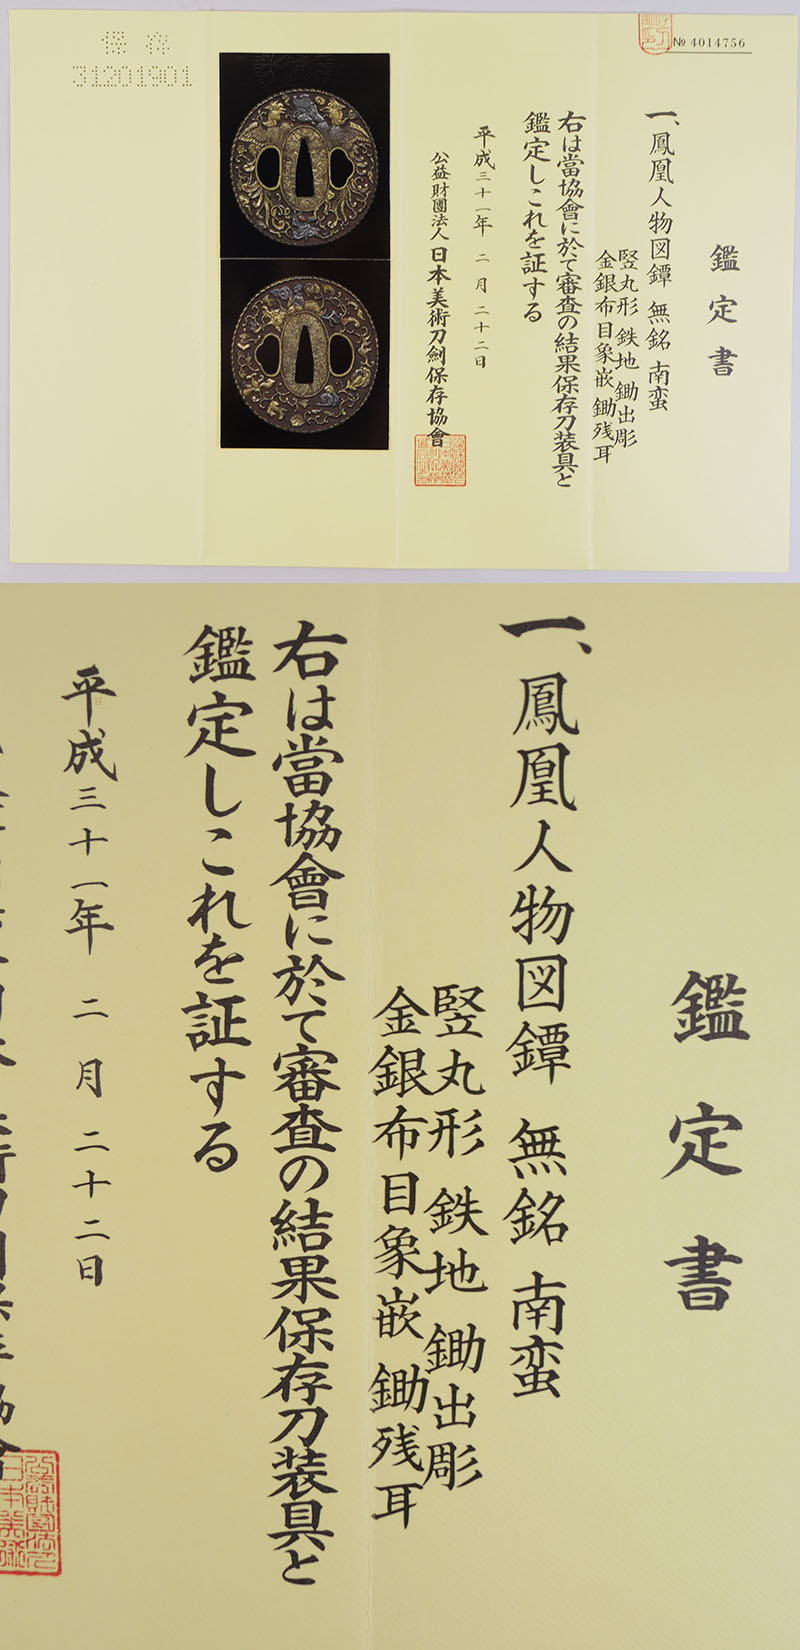 保存
31201901
№ 4014756
鑑定書
一、鳳凰人物図鐔 無銘 南蛮
竪丸形 鉄地 鋤出彫
金銀布目象嵌 鋤残耳
右は當協會に於て審査の結果保存刀装具と
鑑定しこれを証する
平成三十一年 二月 二十二日
公益財團法人 日本美術刀劍保存協會
鑑定書
一、鳳凰人物図鐔 無銘 南蛮
竪丸形 鉄地 鋤出彫
金銀布目象嵌 鋤残耳
右は當協會に於て審査の結果保存刀装具と
鑑定しこれを証する
平成三十一年 二月 二十二日